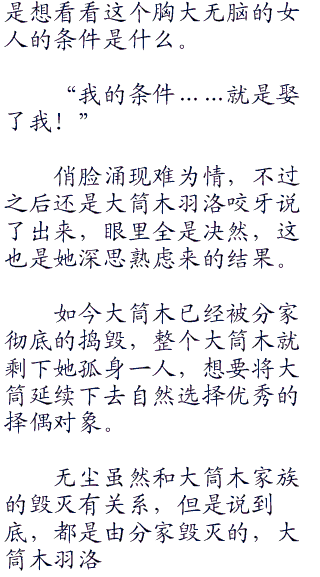 是想看看这个胸大无脑的女
人的条件是什么。
“我的条件……就是娶
了我！”
俏脸涌现难为情，不过
之后还是大筒木羽洛咬牙说
了出来，眼里全是决然，这
也是她深思熟虑来的结果。
如今大筒木已经被分家
彻底的捣毁，整个大筒木就
剩下她孤身一人，想要将大
筒延续下去自然选择优秀的
择偶对象。
无尘虽然和大筒木家族
的毁灭有关系，但是说到
底，都是由分家毁灭的，大
筒木羽洛